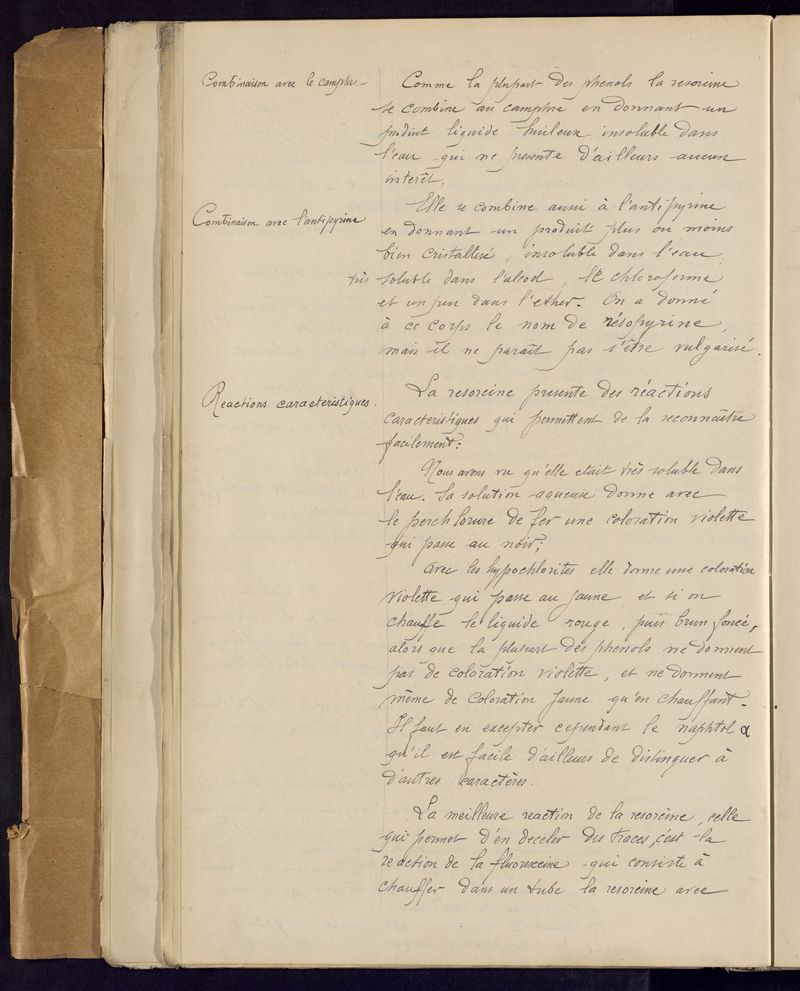 Combinaison avec le camphre -
Comme la plupart des phenols la resorcine
se combine au camphre en donnant un
produit liquide huileux insoluble dans
l'eau qui ne presente d'ailleurs aucun
interêt.
Combinaison avec l'antipyrine
Elle se combine aussi à l'antipyrine
en donnant un produit plus ou moins
bien cristallisé, insoluble dans l'eau,
très soluble dans l'alcool, le chloroforme
et un peu dans l'ether. On a donné
à ce corps le nom de résopyrine,
mais il ne paraît pas s'être vulgarisé.
Reactions caracteristiques.
La resorcine presente des réactions
caracteristiques qui permettent de la reconnaître
facilement:
Nous avons vu qu'elle etait très soluble dans
l'eau. Sa solution aqueuse donne avec
le perchlorure de fer une coloration violette
qui passe au noir;
avec les hypochlorites elle donne une coloration
violette qui passe au jaune et si on
chauffe le liquide rouge, puis brun foncé,
alors que la plupart des phenols ne donnent
pas de coloration violette, et ne donnent
même de coloration jaune qu'en chauffant.
Il faut en excepter cependant le naphtol α
qu'il est facile d'ailleurs de distinguer à
d'autres caractères.
La meilleure reaction de la resorcine, celle
qui permet d'en deceler des traces, c'est la
reaction de la fluoresceine qui consiste à
chauffer dans un tube la resorcine avec